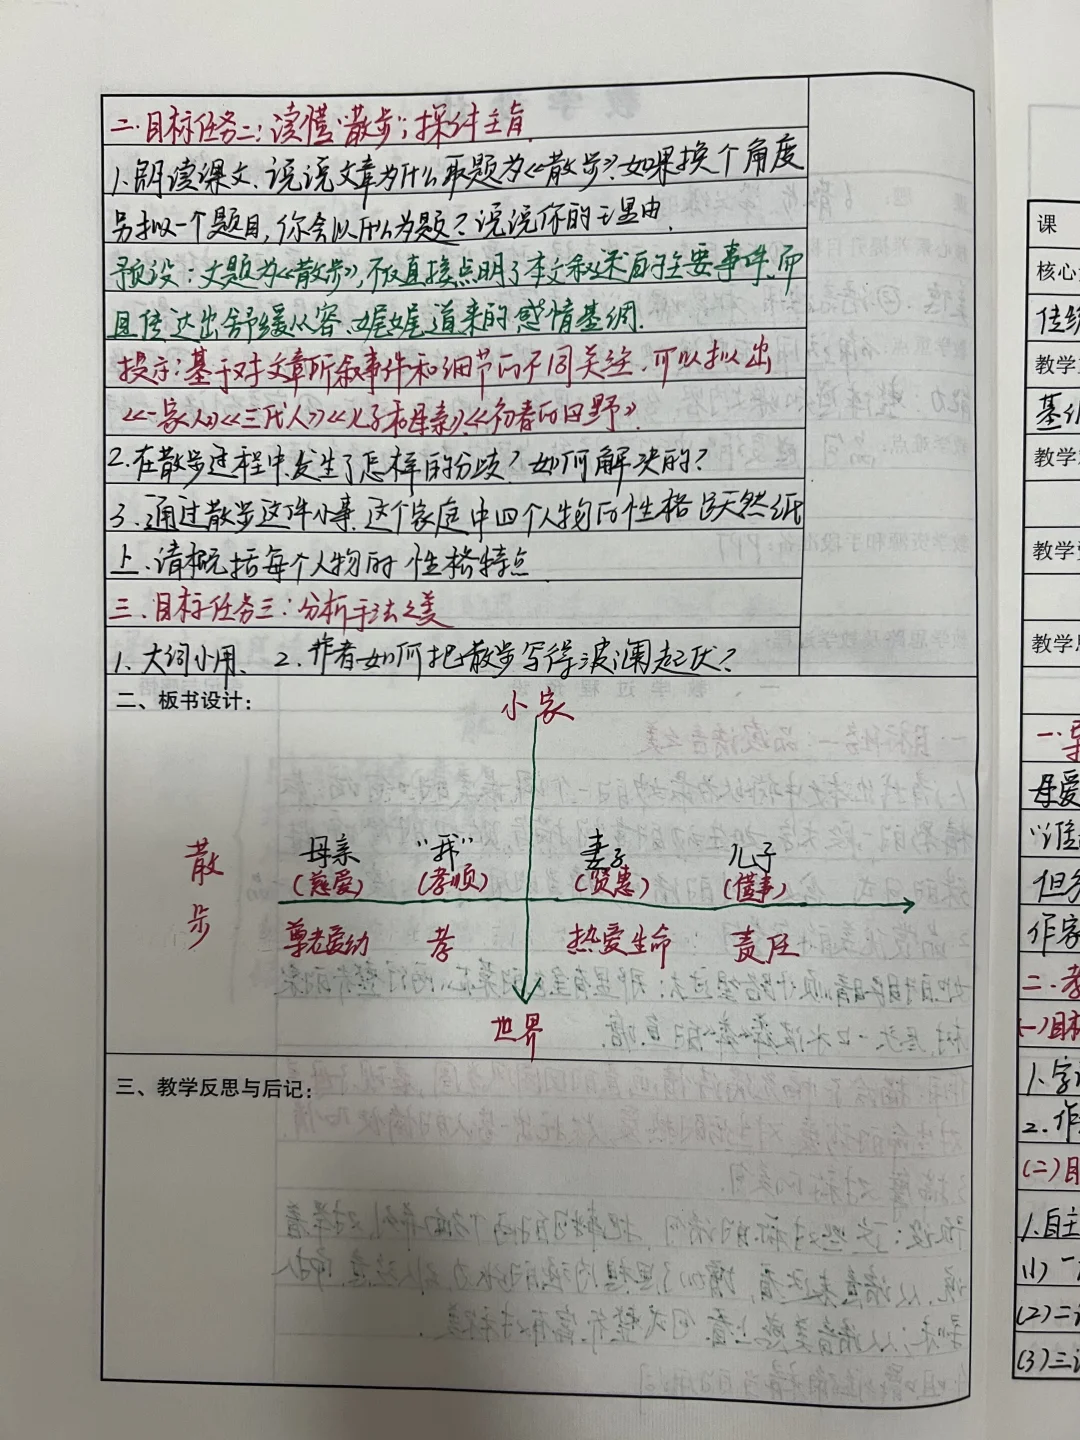 二.目标任务二:读懂“散步”,探讨主旨.
1.朗读课文,说说文章为什么取题为《散步》.如果换个角度
另拟一个题目,你会以什么为题?说说你的理由.
预设:文题为《散步》,不仅直接点明了本文叙述的主要事件,而
且传达出舒缓从容、娓娓道来的感情基调.
提示:基于对文章所叙事件和细节的不同关注,可以拟出
《一家人》《三代人》《儿子和母亲》《初春的田野》
2.在散步过程中,发生了怎样的分歧?如何解决的?
3.通过散步这件小事,这个家庭中四个人物的性格跃然纸
上,请概括每个人物的性格特点
三.目标任务三:分析手法之美
1.大词小用. 2.作者如何把散步写得波澜起伏?
二、板书设计:
小家
散步
母亲 “我” 妻子 儿子
(慈爱) (孝顺) (贤惠) (懂事)
尊老爱幼 孝 热爱生命 责任
世界
三、教学反思与后记:
课
核心
传统
教学
基
教学
教学
教学
一.导
母爱
但
作家
二.
(一)目标
1.字
2.作
(二)目
1.自主
(1)一
(2)二
(3)三